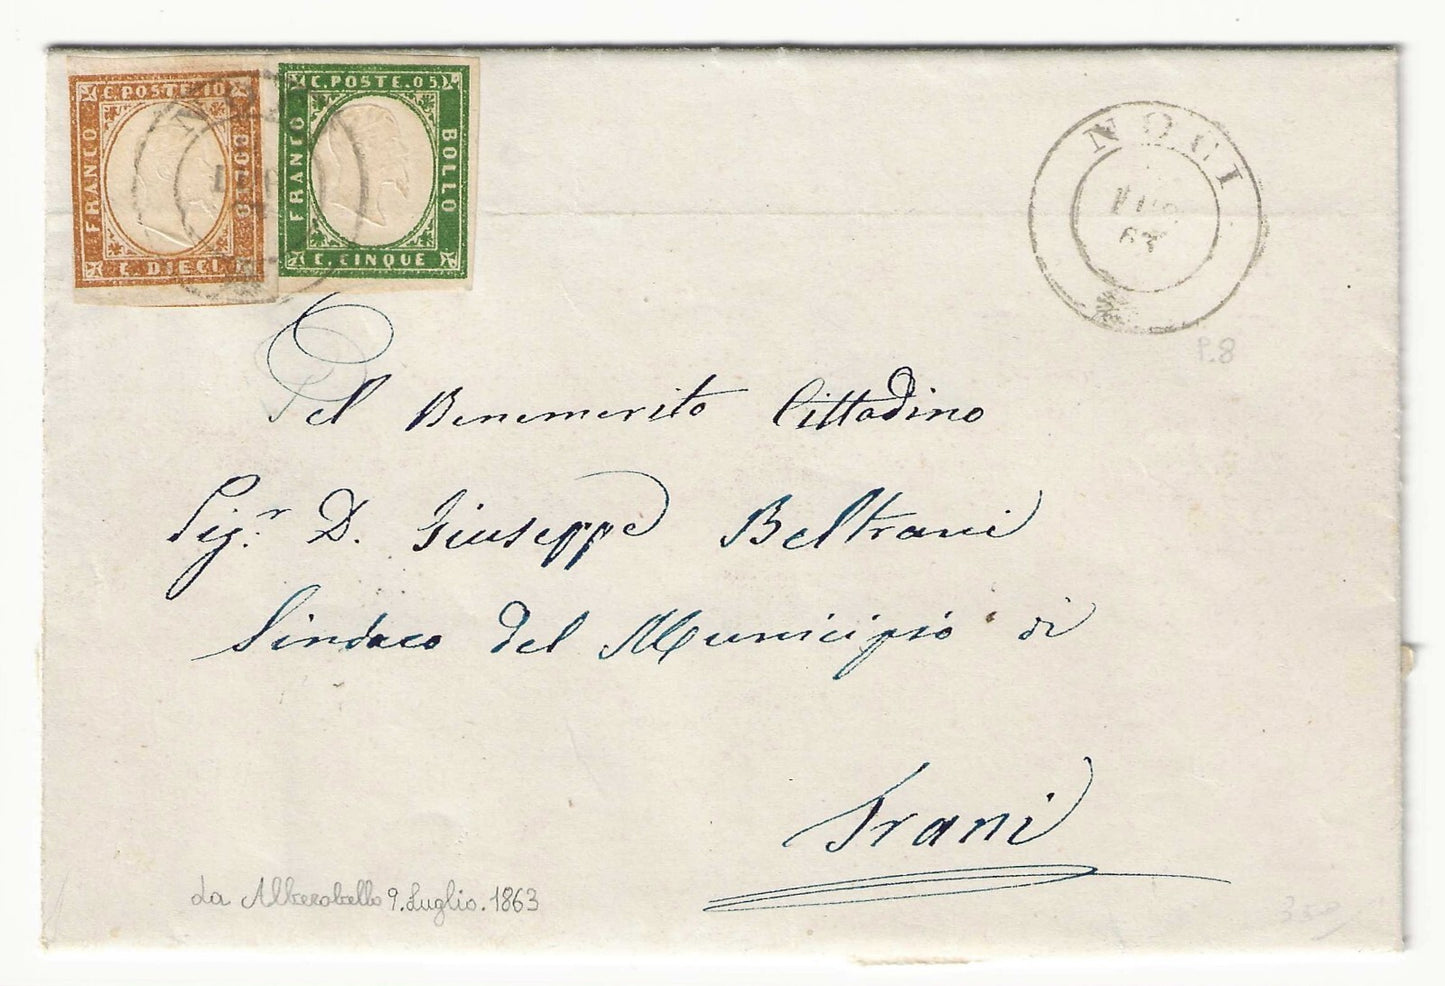 C. POSTE. 10
FRANCO
BOLLO
C. DIECI
C. POSTE. 05
FRANCO
BOLLO
C. CINQUE
NOCI
LUG
63
P.8
Pel Benemerito Cittadino
Sigr. D. Giuseppe Beltrani
Sindaco del Municipio di
Trani
da Alberobello 9. Luglio. 1863
350